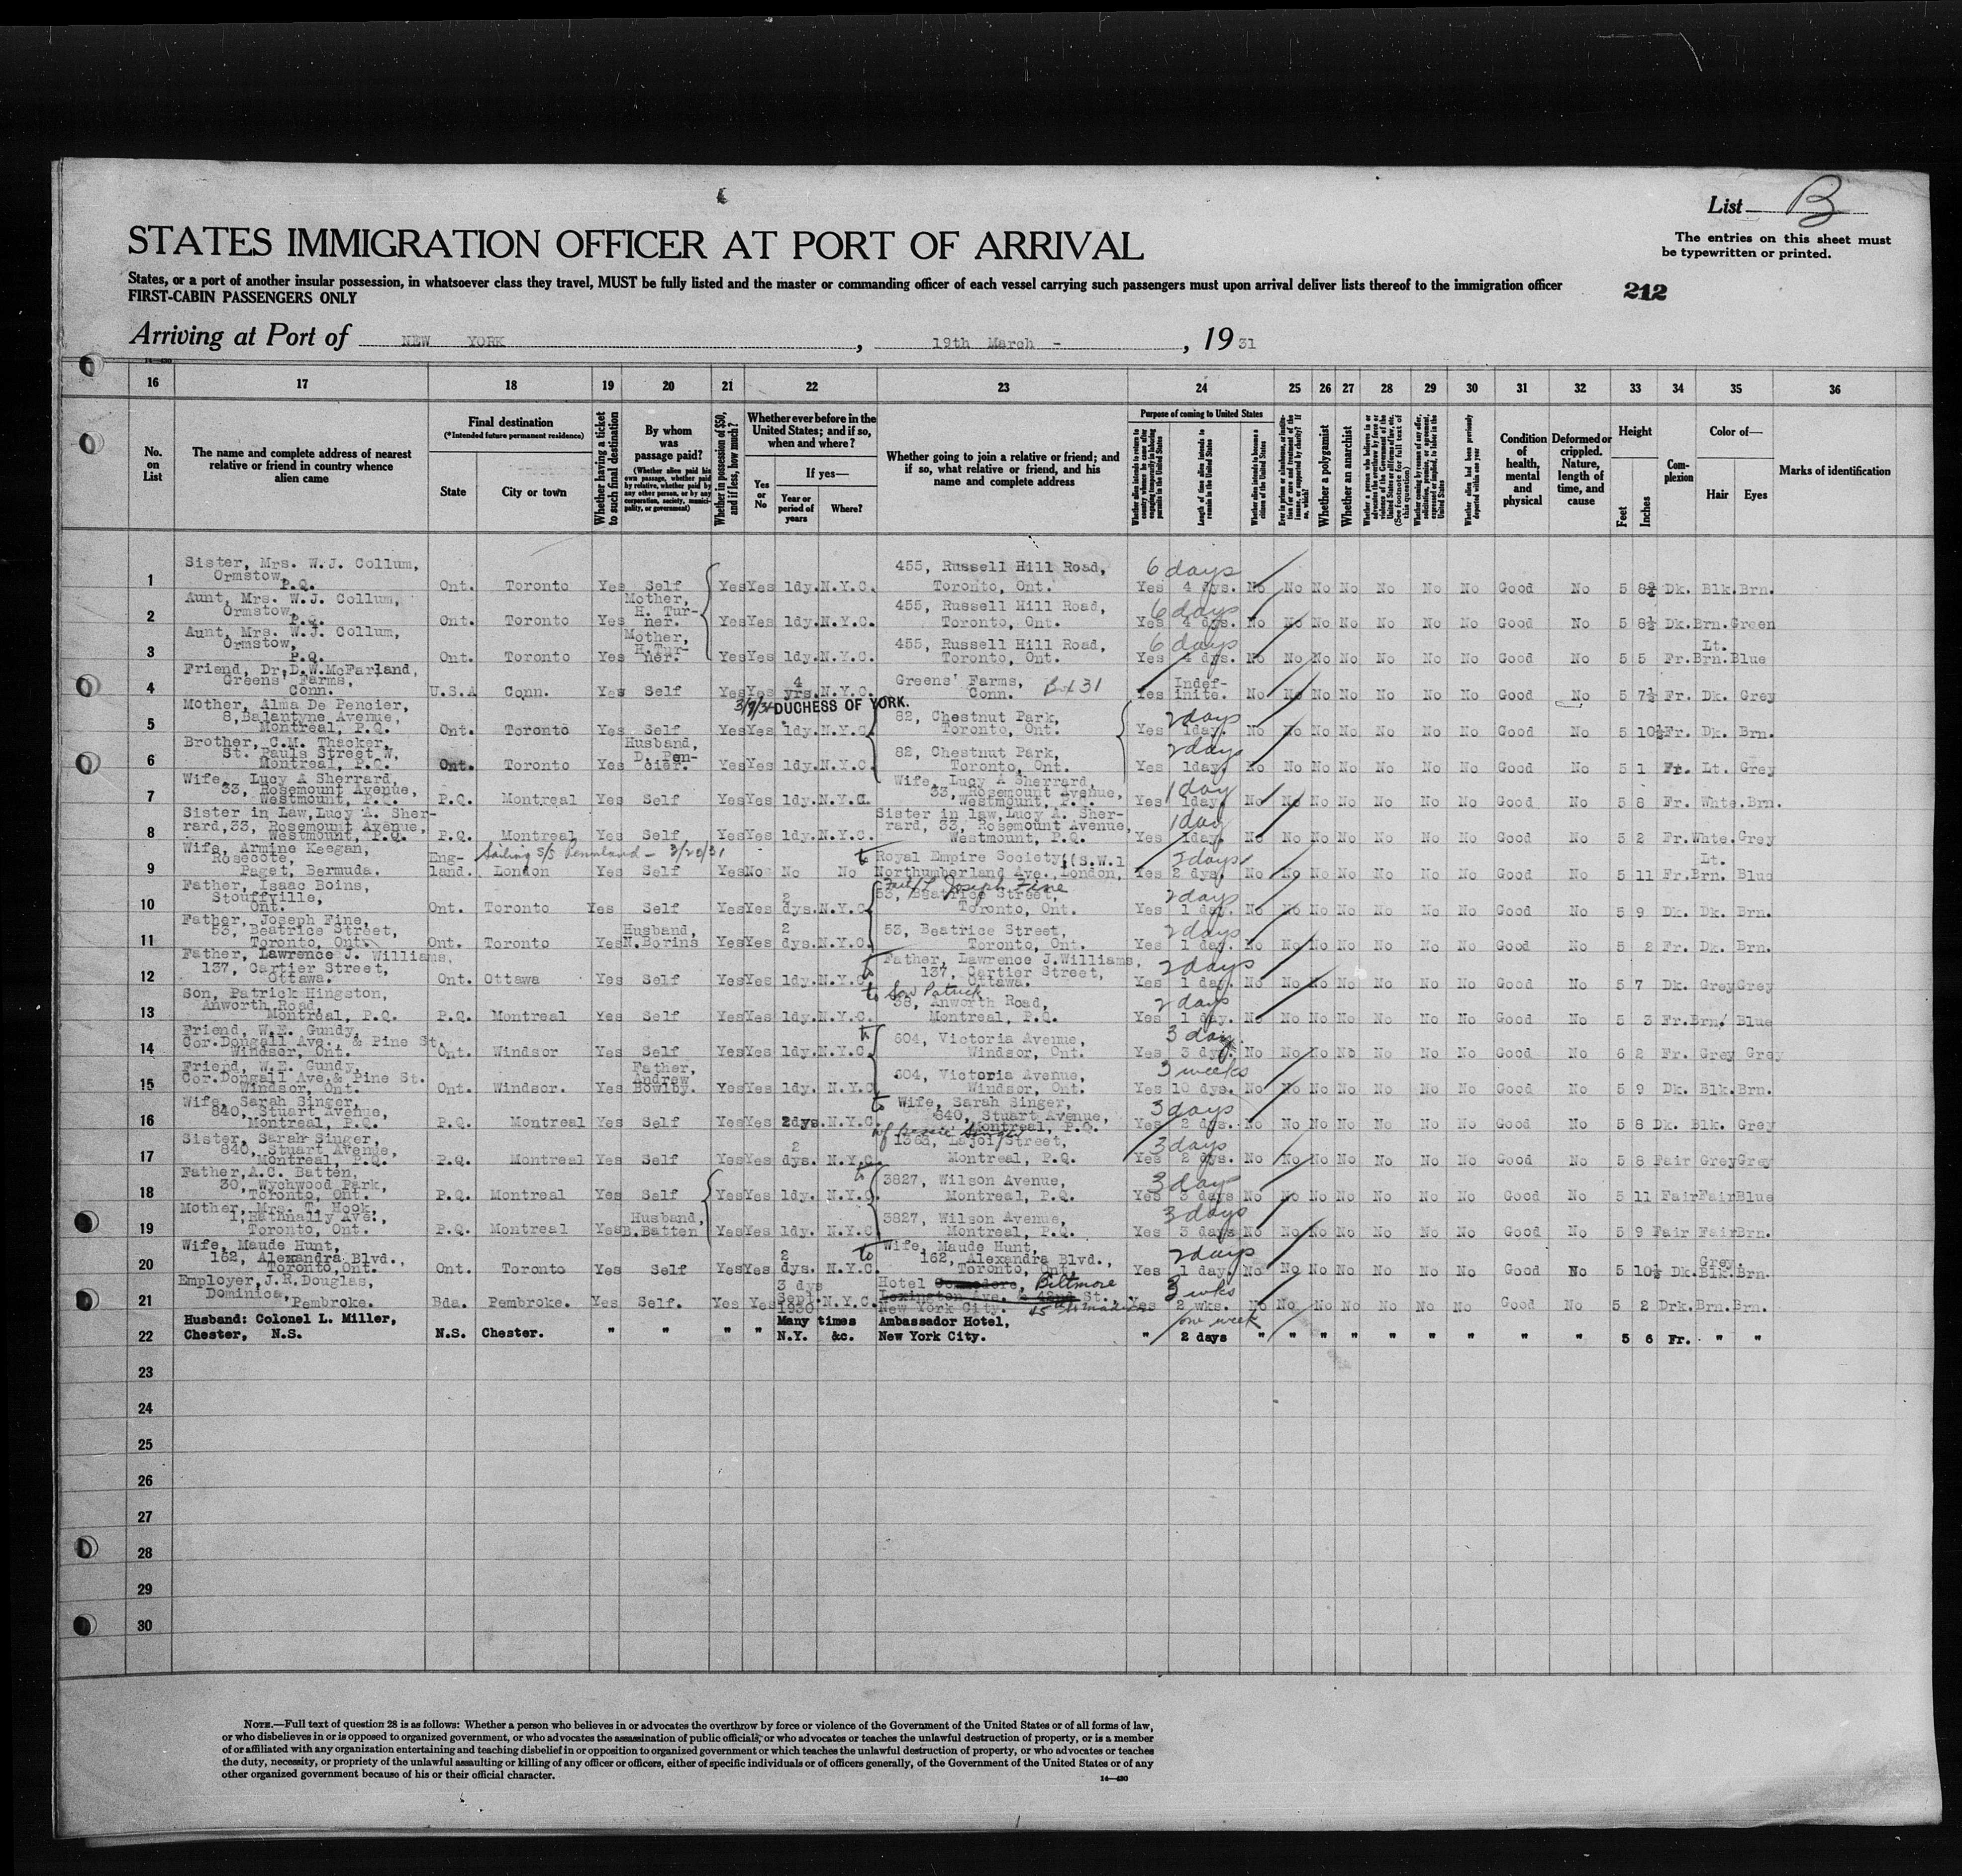 List B
The entries on this sheet must
be typewritten or printed.
STATES IMMIGRATION OFFICER AT PORT OF ARRIVAL
States, or a port of another insular possession, in whatsoever class they travel, MUST be fully listed and the master or commanding officer of each vessel carrying such passengers must upon arrival deliver lists thereof to the immigration officer
FIRST-CABIN PASSENGERS ONLY
212
Arriving at Port of NEW YORK, 19th March -, 19 31
16 17 18 19 20 21 22 23 24 25 26 27 28 29 30 31 32 33 34 35 36
No. on List
The name and complete address of nearest relative or friend in country whence alien came
Final destination
(*Intended future permanent residence)
State
City or town
Whether having a ticket to such final destination
By whom was passage paid?
(Whether alien paid his own passage, whether paid by relative, whether paid by any other person, or by any corporation, society, municipality, or government)
Whether in possession of $50, and if less, how much?
Whether ever before in the United States; and if so, when and where?
Yes or No
If yes—
Year or period of years
Where?
Whether going to join a relative or friend; and if so, what relative or friend, and his name and complete address
Purpose of coming to United States
Length of time alien intends to remain in the United States
Whether alien intends to become a citizen of the United States
Whether a polygamist
Whether an anarchist
Whether alien had been previously deported within one year
Condition of health, mental and physical
Deformed or crippled. Nature, length of time, and cause
Height
Feet
Inches
Complexion
Color of—
Hair
Eyes
Marks of identification
1 Sister, Mrs. W.J. Collum, Ormstow, P.Q. Ont. Toronto Yes Self Yes Yes 1dy. N.Y.C. 455, Russell Hill Road, Toronto, Ont. 6 days Yes 4 dys. No No No No No No No Good No 5 8¾ Dk. Blk. Brn.
2 Aunt, Mrs. W.J. Collum, Ormstow, P.Q. Ont. Toronto Yes Mother, H. Turner. Yes Yes 1dy. N.Y.C. 455, Russell Hill Road, Toronto, Ont. 6 days Yes 4 dys. No No No No No No No Good No 5 8½ Dk. Brn. Green
3 Aunt, Mrs. W.J. Collum, Ormstow, P.Q. Ont. Toronto Yes Mother, H.Turner. Yes Yes 1dy. N.Y.C. 455, Russell Hill Road, Toronto, Ont. 6 days Yes 4 dys. No No No No No No No Good No 5 5 Fr. Lt. Brn. Blue
4 Friend, Dr.D.W.McFarland, Greens' Farms, Conn. U.S.A Conn. Yes Self Yes Yes 4 yrs. N.Y.C. Greens' Farms, Conn. Box 31 Yes Indefinite. No No No No No No No Good No 5 7½ Fr. Dk. Grey
3/9/31 DUCHESS OF YORK.
5 Mother, Alma De Pencier, 8,Balantyne Avenue, Montreal, P.Q. Ont. Toronto Yes Self Yes Yes 1dy. N.Y.C. 82, Chestnut Park, Toronto, Ont. 2 days Yes 1day. No No No No No No No Good No 5 10½ Fr. Dk. Brn.
6 Brother, C.M. Thacker, St. Pauls Street W, Montreal, P.Q. Ont. Toronto Yes Husband, D. Pencier. Yes Yes 1dy. N.Y.C. 82, Chestnut Park, Toronto, Ont. 2 days Yes 1day. No No No No No No No Good No 5 1 Fr. Lt. Grey
7 Wife, Lucy A Sherrard, 33, Rosemount Avenue, Westmount, P.Q. P.Q. Montreal Yes Self Yes Yes 1dy. N.Y.C. Wife, Lucy A Sherrard, 33, Rosemount Avenue, Westmount, P.Q. 1 day Yes 1day. No No No No No No No Good No 5 8 Fr. Whte. Brn.
8 Sister in Law,Lucy A. Sherrard,33, Rosemount Avenue, Westmount, P.Q. P.Q. Montreal Yes Self Yes Yes 1dy. N.Y.C. Sister in law,Lucy A. Sherrard, 33, Rosemount Avenue, Westmount, P.Q. 1 day Yes 1day. No No No No No No No Good No 5 2 Fr. Whte. Grey
9 Wife, Armine Keegan, Rosecote, Paget, Bermuda. England. Sailing S/S Pennland - 3/20/31 London Yes Self Yes No No No to Royal Empire Society, (S.W.1 Northumberland Ave., London, 2 days Yes 2 dys. No No No No No No No Good No 5 11 Fr. Lt. Brn. Blue
10 Father, Isaac Boins, Stouffville, Ont. Ont. Toronto Yes Self Yes Yes 2 dys. N.Y.C. Joseph Fine 53, Beatrice Street, Toronto, Ont. 2 days Yes 1 day. No No No No No No No Good No 5 9 Dk. Dk. Brn.
11 Father, Joseph Fine, 53, Beatrice Street, Toronto, Ont. Ont. Toronto Yes Husband, N.Borins Yes Yes 2 dys. N.Y.C. 53, Beatrice Street, Toronto, Ont. 2 days Yes 1 day. No No No No No No No Good No 5 2 Fr. Dk. Brn.
12 Father, Lawrence J. Williams, 137, Cartier Street, Ottawa. Ont. Ottawa Yes Self Yes Yes 1dy. N.Y.C. to Father, Lawrence J.Williams, 137, Cartier Street, Ottawa. 2 days Yes 1 day. No No No No No No No Good No 5 7 Dk. Grey Grey
13 Son, Patrick Hingston, Anworth Road, Montreal, P.Q. P.Q. Montreal Yes Self Yes Yes 1dy. N.Y.C. to Son Patrick 38, Anworth Road, Montreal, P.Q. 2 days Yes 1 day. No No No No No No No Good No 5 3 Fr. Brn. Blue
14 Friend, W.E. Gundy, Cor.Dougall Ave., & Pine St. Windsor, Ont. Ont. Windsor Yes Self Yes Yes 1dy. N.Y.C. to 604, Victoria Avenue, Windsor, Ont. 3 days Yes 3 dys. No No No No No No No Good No 6 2 Fr. Grey Grey
15 Friend, W.E. Gundy, Cor.Dougall Ave,& Pine St. Windsor, Ont. Ont. Windsor. Yes Father, Andrew Bowlby. Yes Yes 1dy. N.Y.C 604, Victoria Avenue, Windsor, Ont. 3 weeks Yes 10 dys. No No No No No No No Good No 5 9 Dk. Blk. Brn.
16 Wife, Sarah Singer, 840, Stuart Avenue, Montreal, P.Q. P.Q. Montreal Yes Self Yes Yes 2dys. N.Y.C. to Wife, Sarah Singer, 840, Stuart Avenue, Montreal, P.Q. 3 days Yes 2 dys. No No No No No No No Good No 5 8 Dk. Blk. Grey
17 Sister, Sarah Singer, 840, Stuart Avenue, Montreal, P.Q. P.Q. Montreal Yes Self Yes Yes 2 dys. N.Y.C. Street, Montreal, P.Q. 3 days Yes 2 dys. No No No No No No No Good No 5 8 Fair Grey Grey
18 Father,A.C. Batten, 30, Wychwood Park, Toronto, Ont. P.Q. Montreal Yes Self Yes Yes 1dy. N.Y.C. to 3827, Wilson Avenue, Montreal, P.Q. 3 days Yes 3 days No No No No No No No Good No 5 11 Fair Fair Blue
19 Mother, Mrs. T. Hook, 1,Rathnally Ave., Toronto, Ont. P.Q. Montreal Yes Husband, B.Batten Yes Yes 1dy. N.Y.C 3827, Wilson Avenue, Montreal, P.Q. 3 days Yes 3 days No No No No No No No Good No 5 9 Fair Fair Brn.
20 Wife, Maude Hunt, 162, Alexandra Blvd., Toronto,Ont. Ont. Toronto Yes Self Yes Yes 2 dys. N.Y.C. to Wife, Maude Hunt, 162, Alexandra Blvd., Toronto, Ont. 2 days Yes 1 day. No No No No No No No Good No 5 10½ Dk. Grey. Blk. Brn.
21 Employer,J.R.Douglas, Dominica, Pembroke. Bda. Pembroke. Yes Self. Yes Yes 3 dys Sept. 1930 N.Y.C. Hotel Commodore, Biltmore Lexington Ave. & 42nd St., New York City. 3 wks Yes 2 wks. No No No No No No No Good No 5 2 Drk. Brn. Brn.
22 Husband: Colonel L. Miller, Chester, N.S. N.S. Chester. " " " " Many times N.Y. &c. Ambassador Hotel, New York City. one week " 2 days " " " " " " " " " 5 6 Fr. " "
23
24
25
26
27
28
29
30
NOTE.—Full text of question 28 is as follows: Whether a person who believes in or advocates the overthrow by force or violence of the Government of the United States or of all forms of law,
or who disbelieves in or is opposed to organized government, or who advocates the assassination of public officials, or who advocates or teaches the unlawful destruction of property, or is a member
of or affiliated with any organization entertaining and teaching disbelief in or opposition to organized government or which teaches the unlawful destruction of property, or who advocates or teaches
the duty, necessity, or propriety of the unlawful assaulting or killing of any officer or officers, either of specific individuals or of officers generally, of the Government of the United States or of any
other organized government because of his or their official character.
14—430